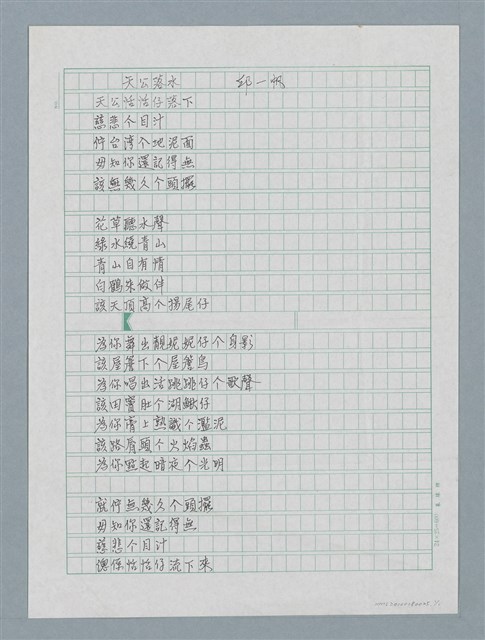 天公落水　邱一帆
天公恬恬仔落下
慈悲个目汁
佇台湾个地泥面
毋知你還記得無
該無幾久个頭擺
花草聽水聲
綠水繞青山
青山自有情
白鶴來做伴
該天頂高个揚尾仔
為你舞出靚妮妮仔个身影
該屋簷下个屋簷鳥
為你唱出活跳跳仔个歌聲
該田竇肚个湖鰍仔
為你膏上熟識个濫泥
該路脣頭个火焰蟲
為你點起暗夜个光明
就佇無幾久个頭擺
毋知你還記得無
慈悲个目汁
還係恬恬仔流下來